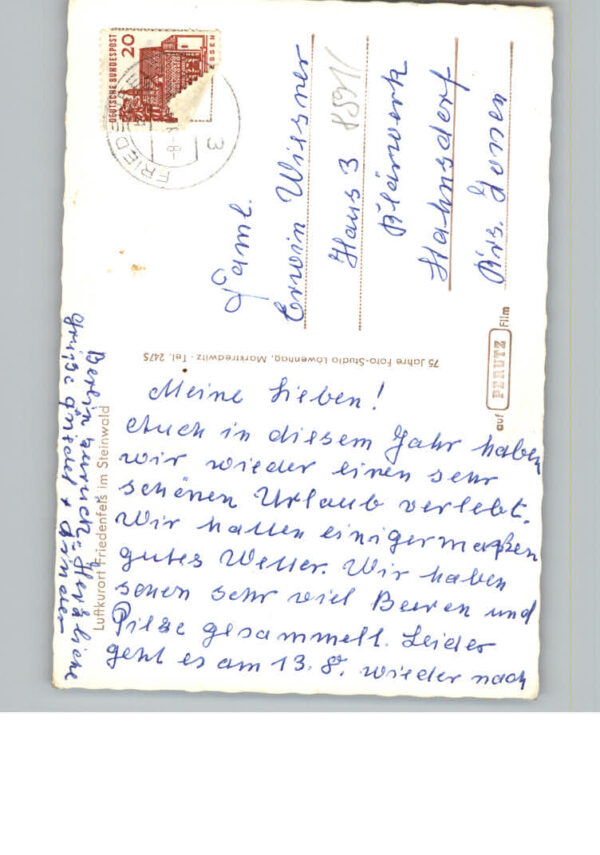 Meine Lieben!
Auch in diesem Jahr haben
wir wieder einen sehr
schönen Urlaub verlebt.
Wir hatten einigermaßen
gutes Wetter. Wir haben
schon sehr viel Beeren und
Pilze gesammelt. Leider
geht es am 13. 8. wieder nach
Berlin zurück. Herzliche
Grüße
Luftkurort Friedenfels im Steinwald
75 Jahre Foto-Studio Lowenhag, Marktredwitz · Tel. 2475
auf PERUTZ Film
DEUTSCHE BUNDESPOST
20
ESSEN
FRIEDE
3
Fam.
Erwin Wiesner
Haus 3
8591/
Klärwerk
Hahnsdorf
Krs.